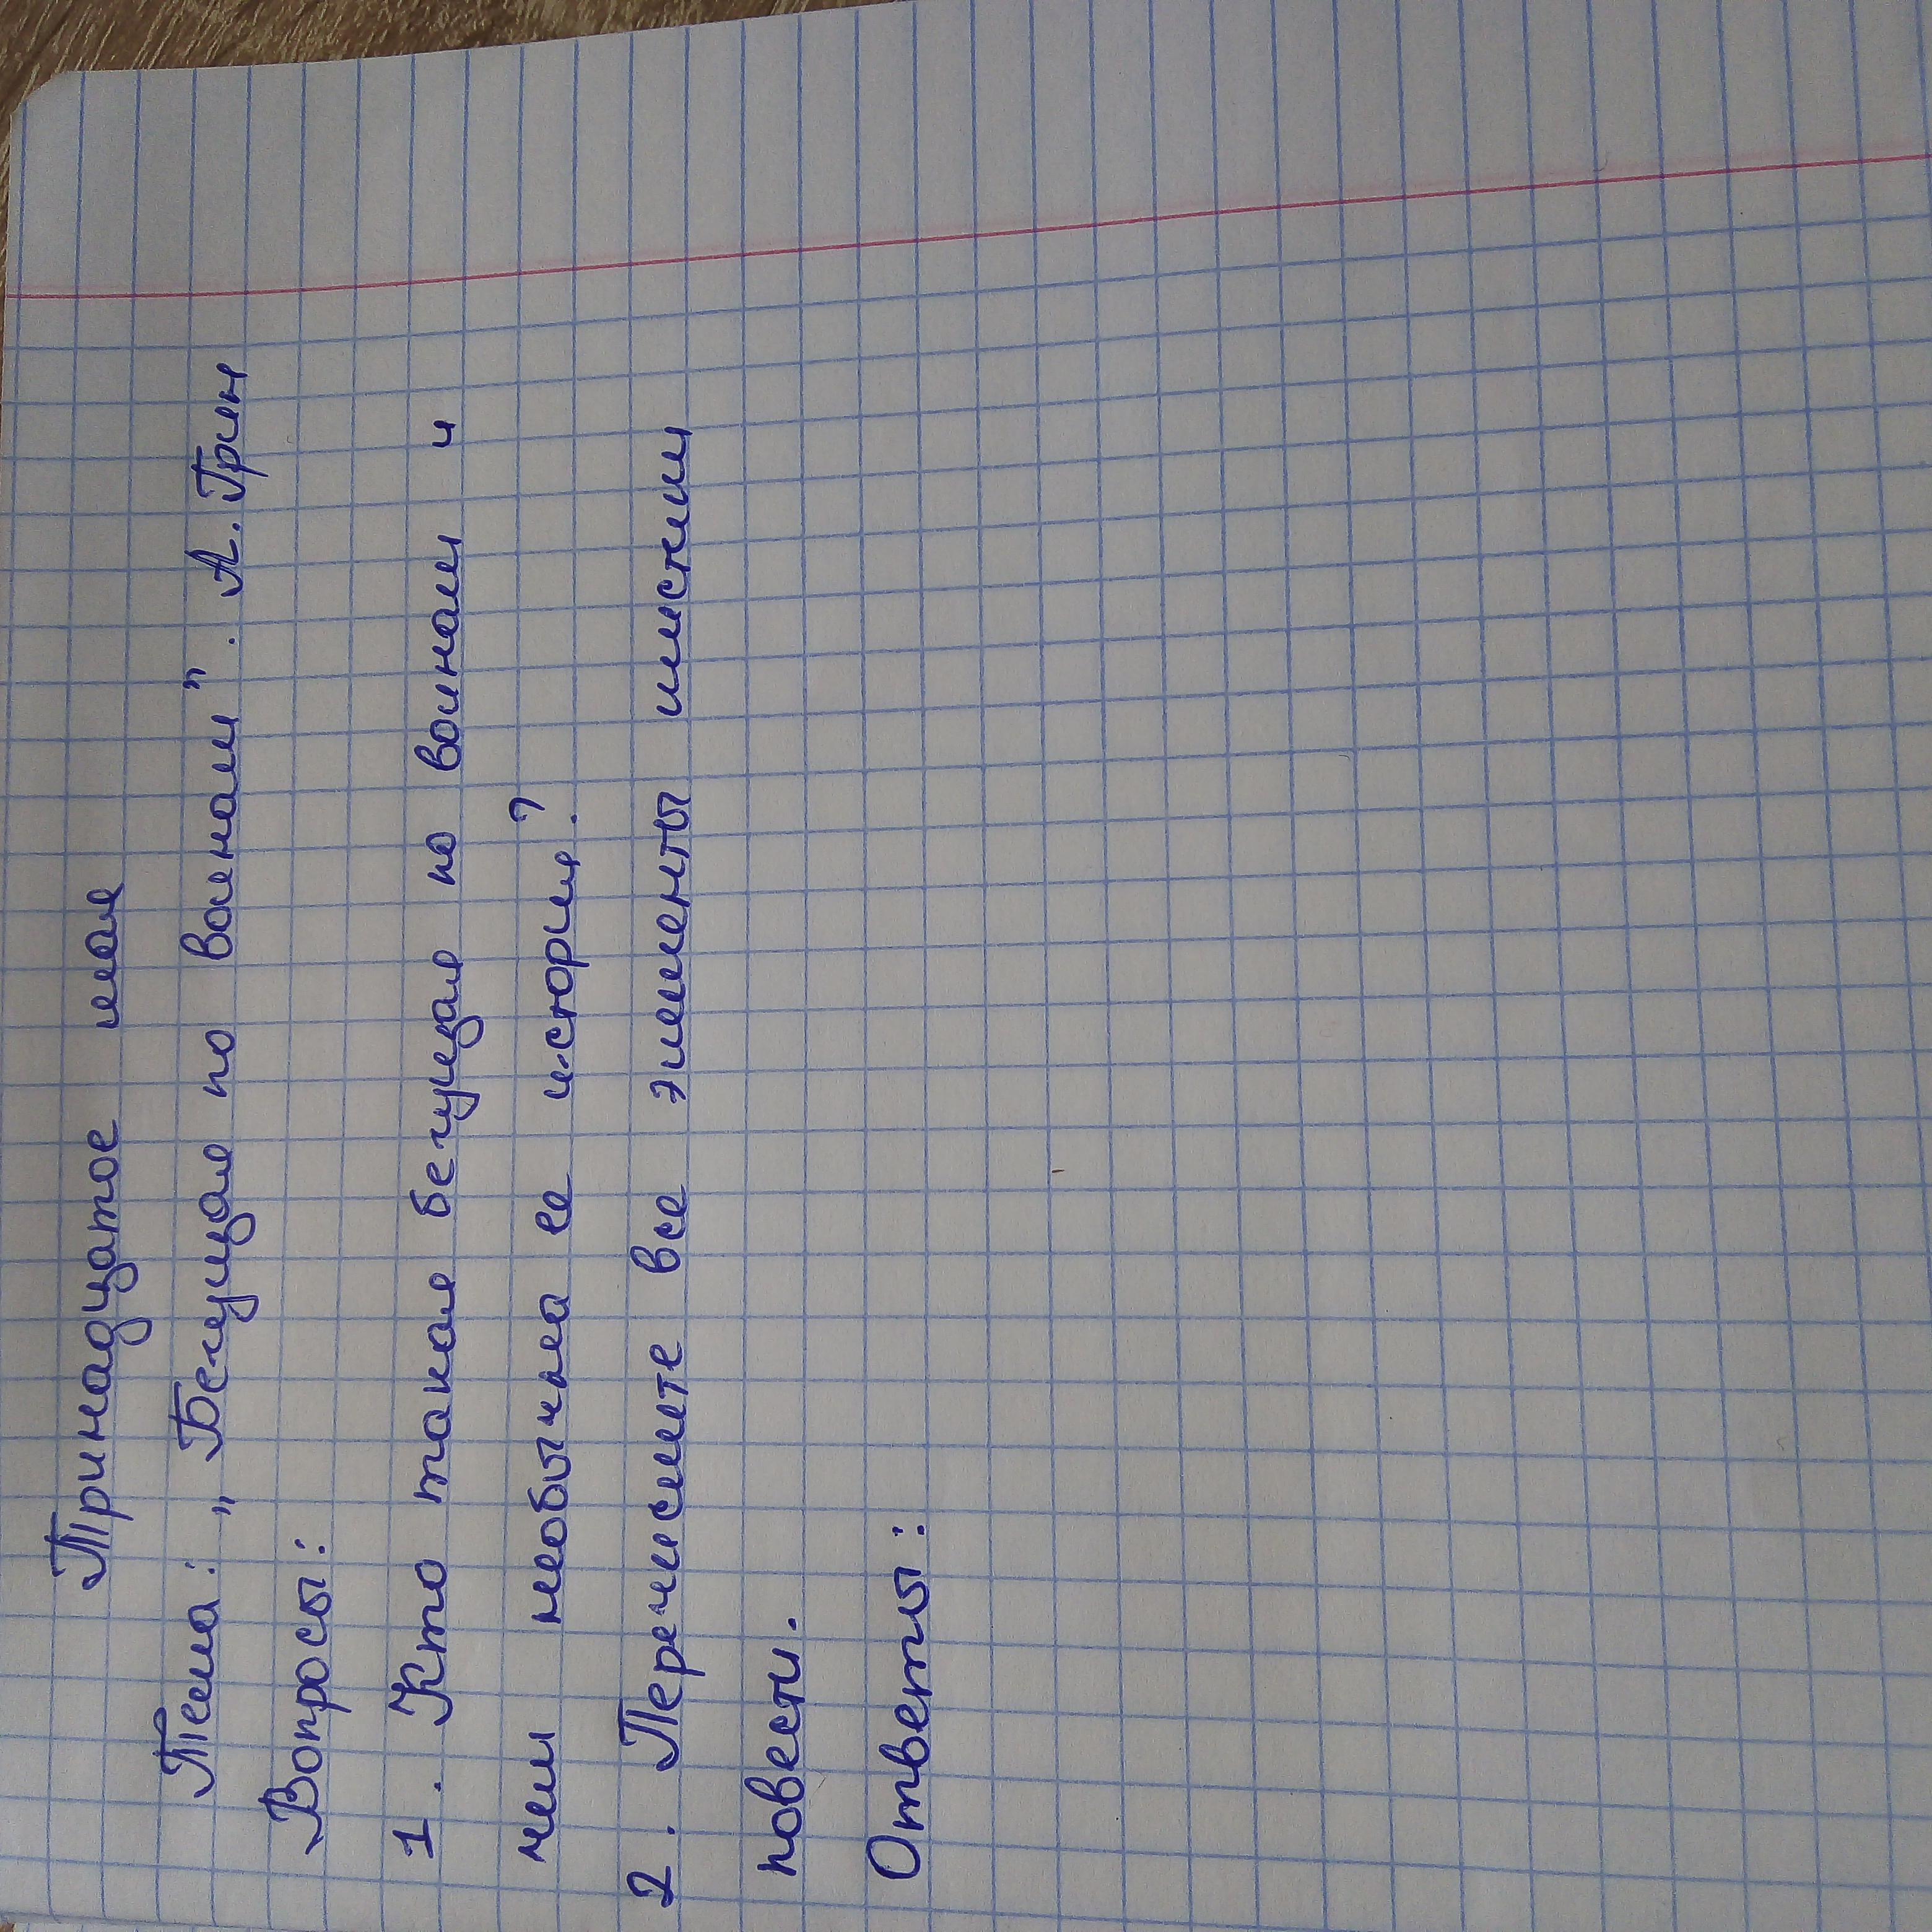 Тринадцатое мая
Тема: „Бегущая по волнам". А. Грин
Вопросы:
1. Кто такая бегущая по волнам и
чем необычна ее история?
2. Перечислите все элементы мистики
повести.
Ответы: